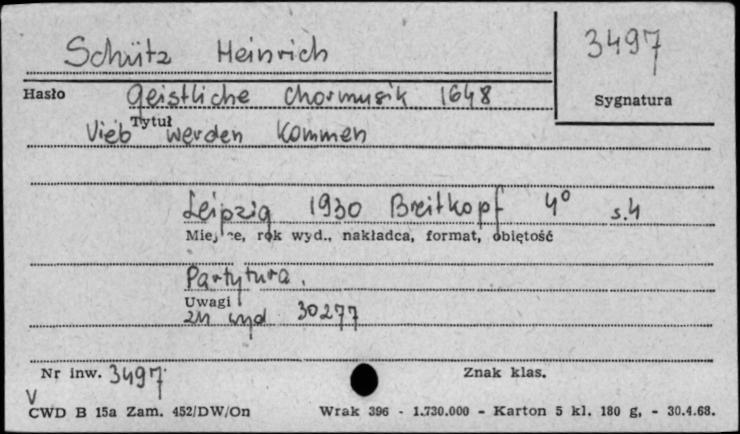 Schütz Heinrich
3497
Hasło
Geistliche Chormusik 1648
Sygnatura
Tytuł
Vieb werden kommen
Leipzig 1930 Breitkopf 4° s.4
Miejsce, rok wyd., nakładca, format, objętość
Partytura.
Uwagi
zn wyd 30277
Nr inw. 3497
Znak klas.
V
CWD B 15a Zam. 452/DW/On Wrak 396 - 1.730.000 - Karton 5 kl. 180 g, - 30.4.68.